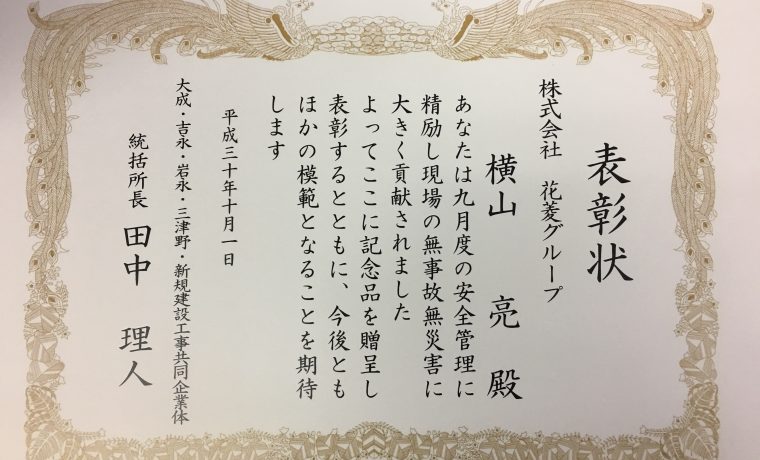 表彰状
株式会社 花菱グループ
横山 亮 殿
あなたは九月度の安全管理に
精励し現場の無事故無災害に
大きく貢献されました
よってここに記念品を贈呈し
表彰するとともに、今後とも
ほかの模範となることを期待
します
平成三十年十月一日
大成・吉永・岩永・三津野・新規建設工事共同企業体
統括所長 田中 理人